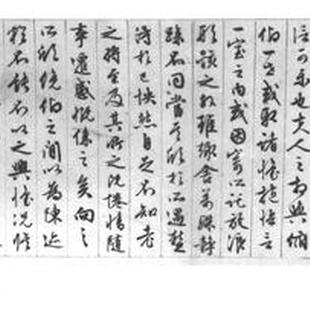 信可樂也夫人之相與俯
仰一世或取諸懷抱悟言
一室之内或因寄所託放浪
形骸之外雖趣舍萬殊靜
躁不同當其欣於所遇蹔
得於己怏然自足不知老
之將至及其所之既惓情隨
事遷感慨係之矣向之
所欣俛仰之間以為陳迹
猶不能不以之興懷況脩